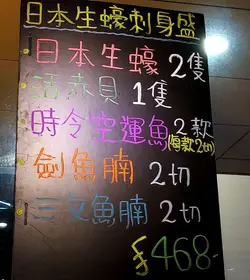 日本生蠔刺身盛
日本生蠔 2隻
活赤貝 1隻
時令空運魚 2款
(每款2切)
劍魚腩 2切
三文魚腩 2切
$468-